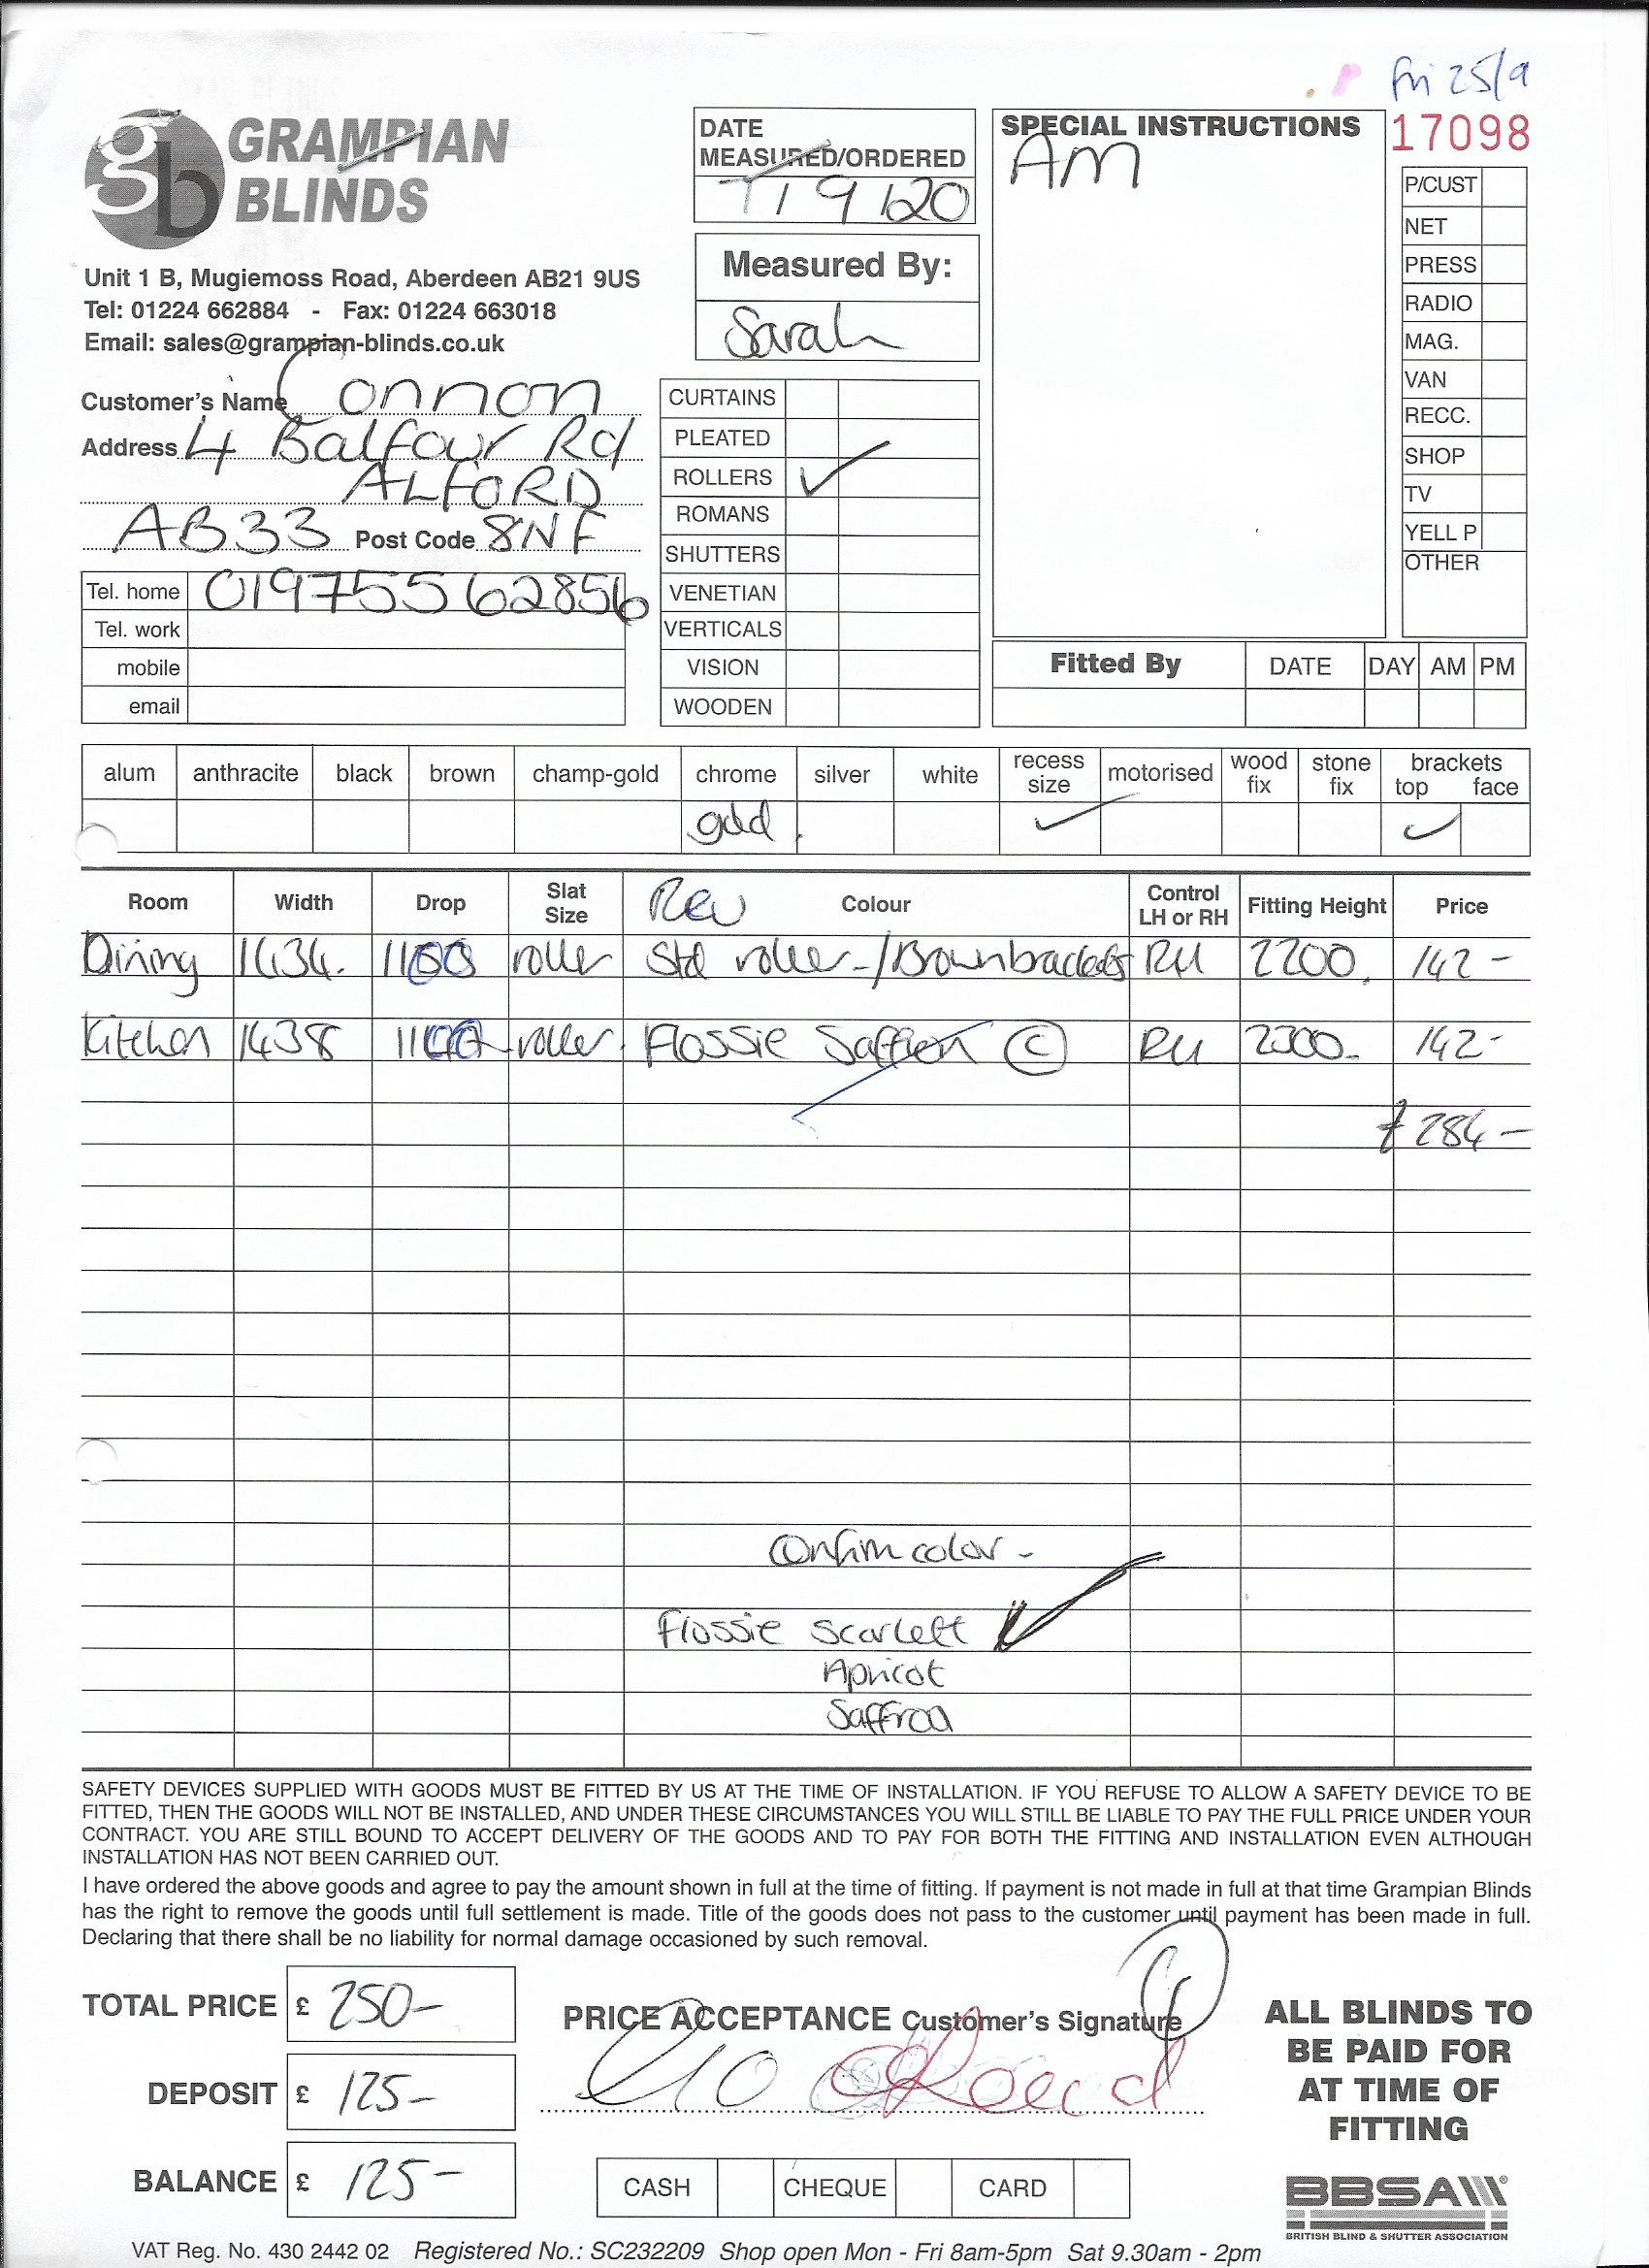 Fri 25/9
17098
GRAMPIAN
BLINDS
Unit 1 B, Mugiemoss Road, Aberdeen AB21 9US
Tel: 01224 662884 - Fax: 01224 663018
Email: sales@grampian-blinds.co.uk
Customer's Name Connon
Address 4 Balfour Rd
ALFORD
AB33 Post Code 8NF
Tel. home 019755 62856
Tel. work
mobile
email
DATE
MEASURED/ORDERED
7/9/20
Measured By:
Sarah
CURTAINS
PLEATED
ROLLERS ✓
ROMANS
SHUTTERS
VENETIAN
VERTICALS
VISION
WOODEN
SPECIAL INSTRUCTIONS
AM
P/CUST
NET
PRESS
RADIO
MAG.
VAN
RECC.
SHOP
TV
YELL P
OTHER
Fitted By DATE DAY AM PM
alum anthracite black brown champ-gold chrome silver white recess size motorised wood fix stone fix brackets top face
gold ✓ ✓
Room Width Drop Slat Size Rev Colour Control LH or RH Fitting Height Price
Dining 1434 roller Std roller - / Brown brackets RH 2200 142 -
Kitchen 1438 roller Flossie Saffron © RH 2300 142 -
£ 284 -
Confirm color -
Flossie Scarlett ✓
Apricot
Saffron
SAFETY DEVICES SUPPLIED WITH GOODS MUST BE FITTED BY US AT THE TIME OF INSTALLATION. IF YOU REFUSE TO ALLOW A SAFETY DEVICE TO BE
FITTED, THEN THE GOODS WILL NOT BE INSTALLED, AND UNDER THESE CIRCUMSTANCES YOU WILL STILL BE LIABLE TO PAY THE FULL PRICE UNDER YOUR
CONTRACT. YOU ARE STILL BOUND TO ACCEPT DELIVERY OF THE GOODS AND TO PAY FOR BOTH THE FITTING AND INSTALLATION EVEN ALTHOUGH
INSTALLATION HAS NOT BEEN CARRIED OUT.
I have ordered the above goods and agree to pay the amount shown in full at the time of fitting. If payment is not made in full at that time Grampian Blinds
has the right to remove the goods until full settlement is made. Title of the goods does not pass to the customer until payment has been made in full.
Declaring that there shall be no liability for normal damage occasioned by such removal.
TOTAL PRICE £ 250 -
DEPOSIT £ 125 -
BALANCE £ 125 -
PRICE ACCEPTANCE Customer's Signature
CASH CHEQUE CARD
ALL BLINDS TO
BE PAID FOR
AT TIME OF
FITTING
BBSA
BRITISH BLIND & SHUTTER ASSOCIATION
VAT Reg. No. 430 2442 02 Registered No.: SC232209 Shop open Mon - Fri 8am-5pm Sat 9.30am - 2pm